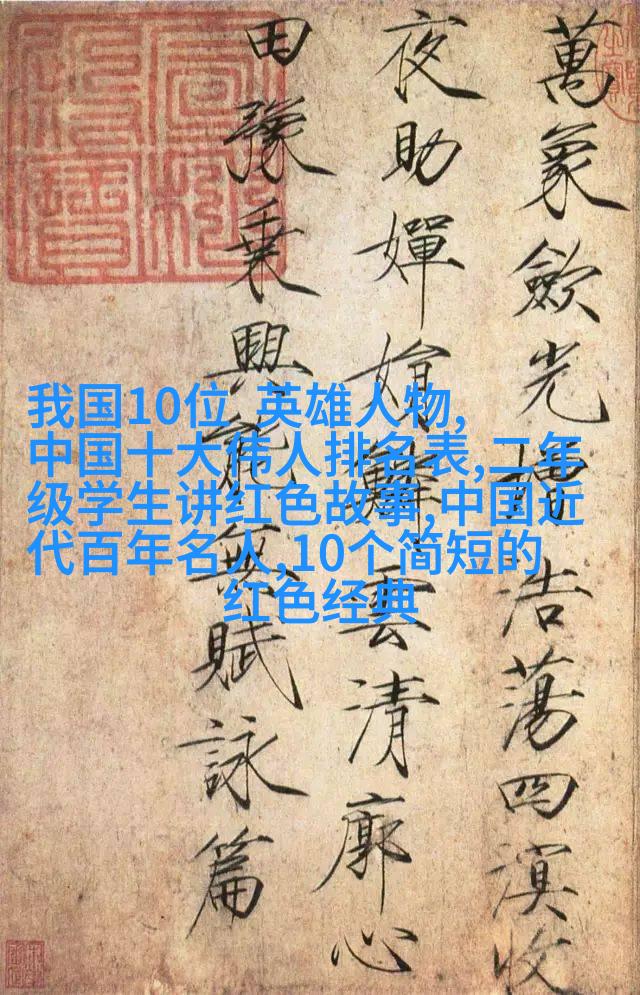 萬象歛光增浩蕩四溟收
夜助嬋娟鱗雲清廓心
田豫乘興能無賦詠篇
我国10位 英雄人物,
中国十大伟人排名表,二年
级学生讲红色故事,中国近
代百年名人,10个简短的
红色经典